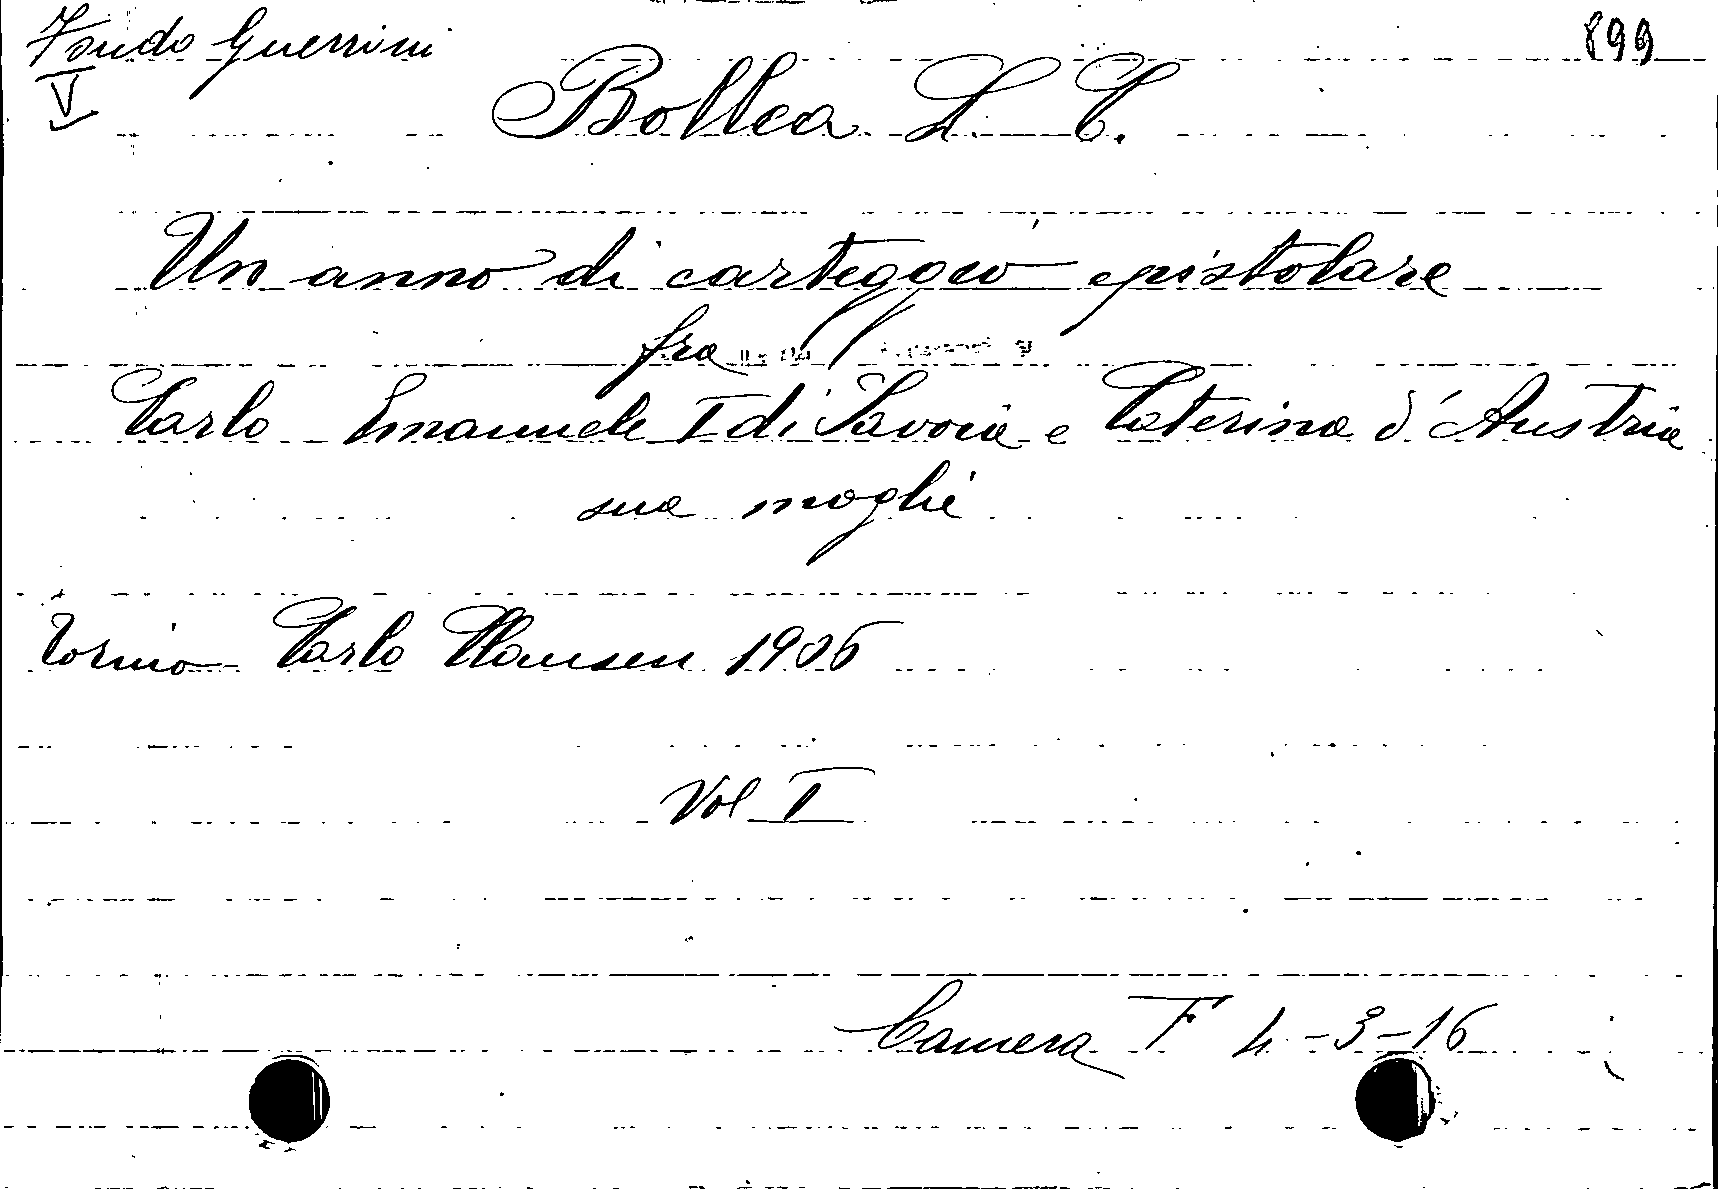 Fondo Guerrini 899
V
Bollea L. C.
Un anno di carteggio epistolare
fra
Carlo Emanuele I di Savoia e Caterina d'Austria
sua moglie
Torino Carlo Clausen 1906
Vol I
Camera F 4-3-16